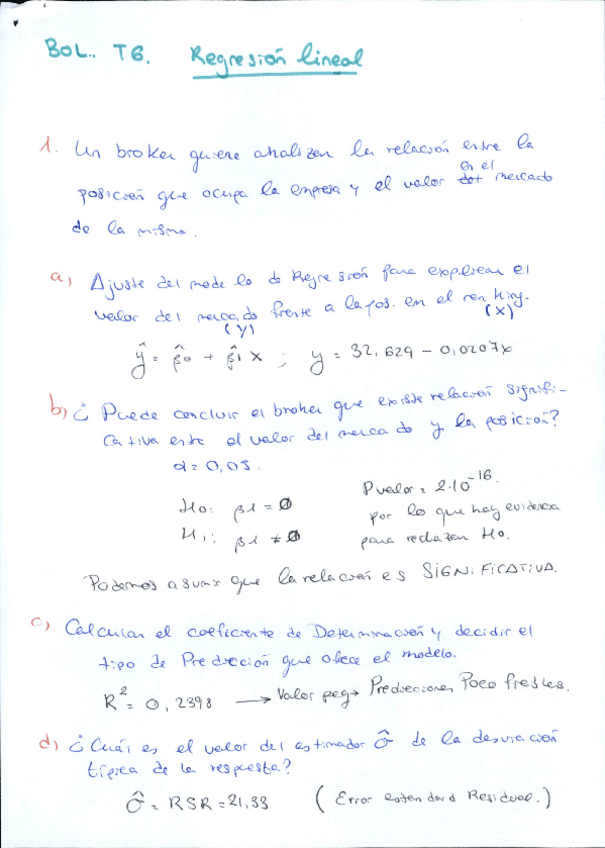 BOL.. T6. Regresión lineal
1. Un broker quiere analizar la relación entre la
posición que ocupa la empresa y el valor en el mercado
de la misma.
a) Ajuste del modelo de Regresión para explicar el
valor del mercado frente a la pos. en el ranking.
(Y) (X)
ŷ = β̂0 + β̂1 X ; y = 32,629 - 0,0207x
b) ¿Puede concluir el broker que existe relación signifi-
cativa entre el valor del mercado y la posición?
α = 0,05.
H0: β1 = 0 Pvalor = 2·10^-16.
H1: β1 ≠ 0 por lo que hay evidencia
para rechazar H0.
Podemos asumir que la relación es SIGNIFICATIVA.
c) Calcular el coeficiente de Determinación y decidir el
tipo de Predicción que ofece el modelo.
R² = 0,2398 → Valor peq → Predicciones Poco fiables.
d) ¿Cuál es el valor del estimador σ̂ de la desviación
típica de la respuesta?
σ̂ = RSR = 21,33 (Error estandard Residual.)